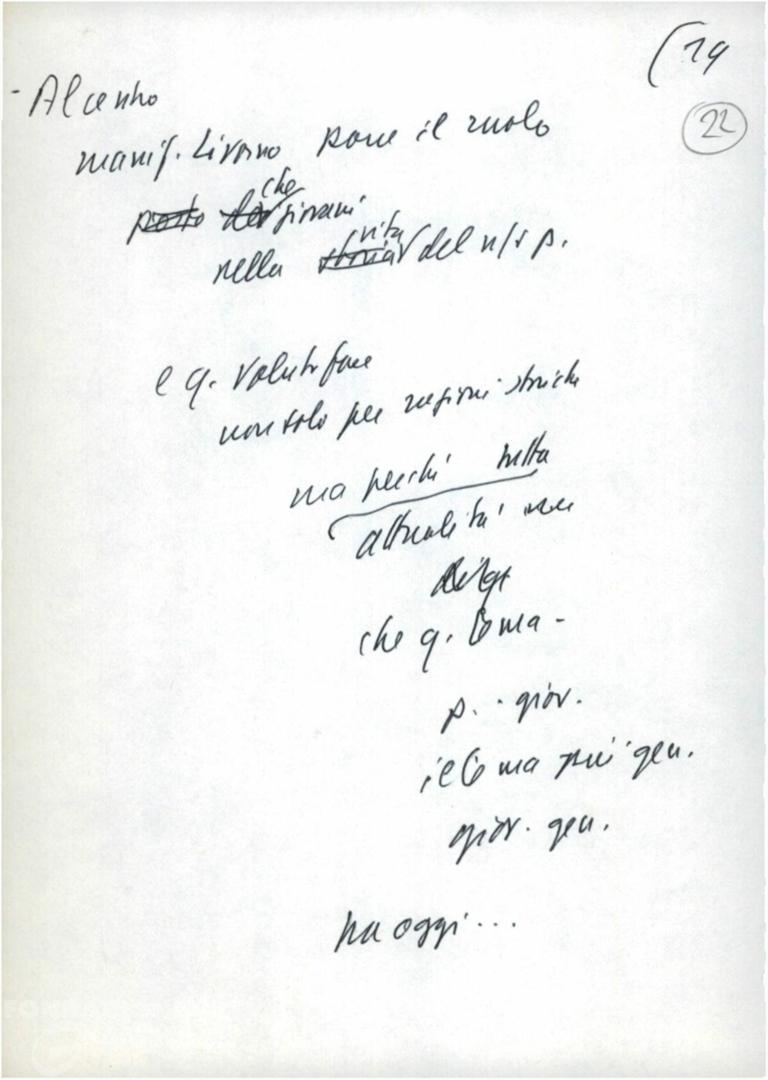 (19
22
- Al centro
manif. Livorno pone il ruolo
posto dei che giovani
nella storia vita del n/s p.
e q. voluto fare
non solo per ragioni storiche
ma perché tutta
attualità
che q. tema -
p. . giov.
il tema più gen.
giov. gen.
ha oggi ...